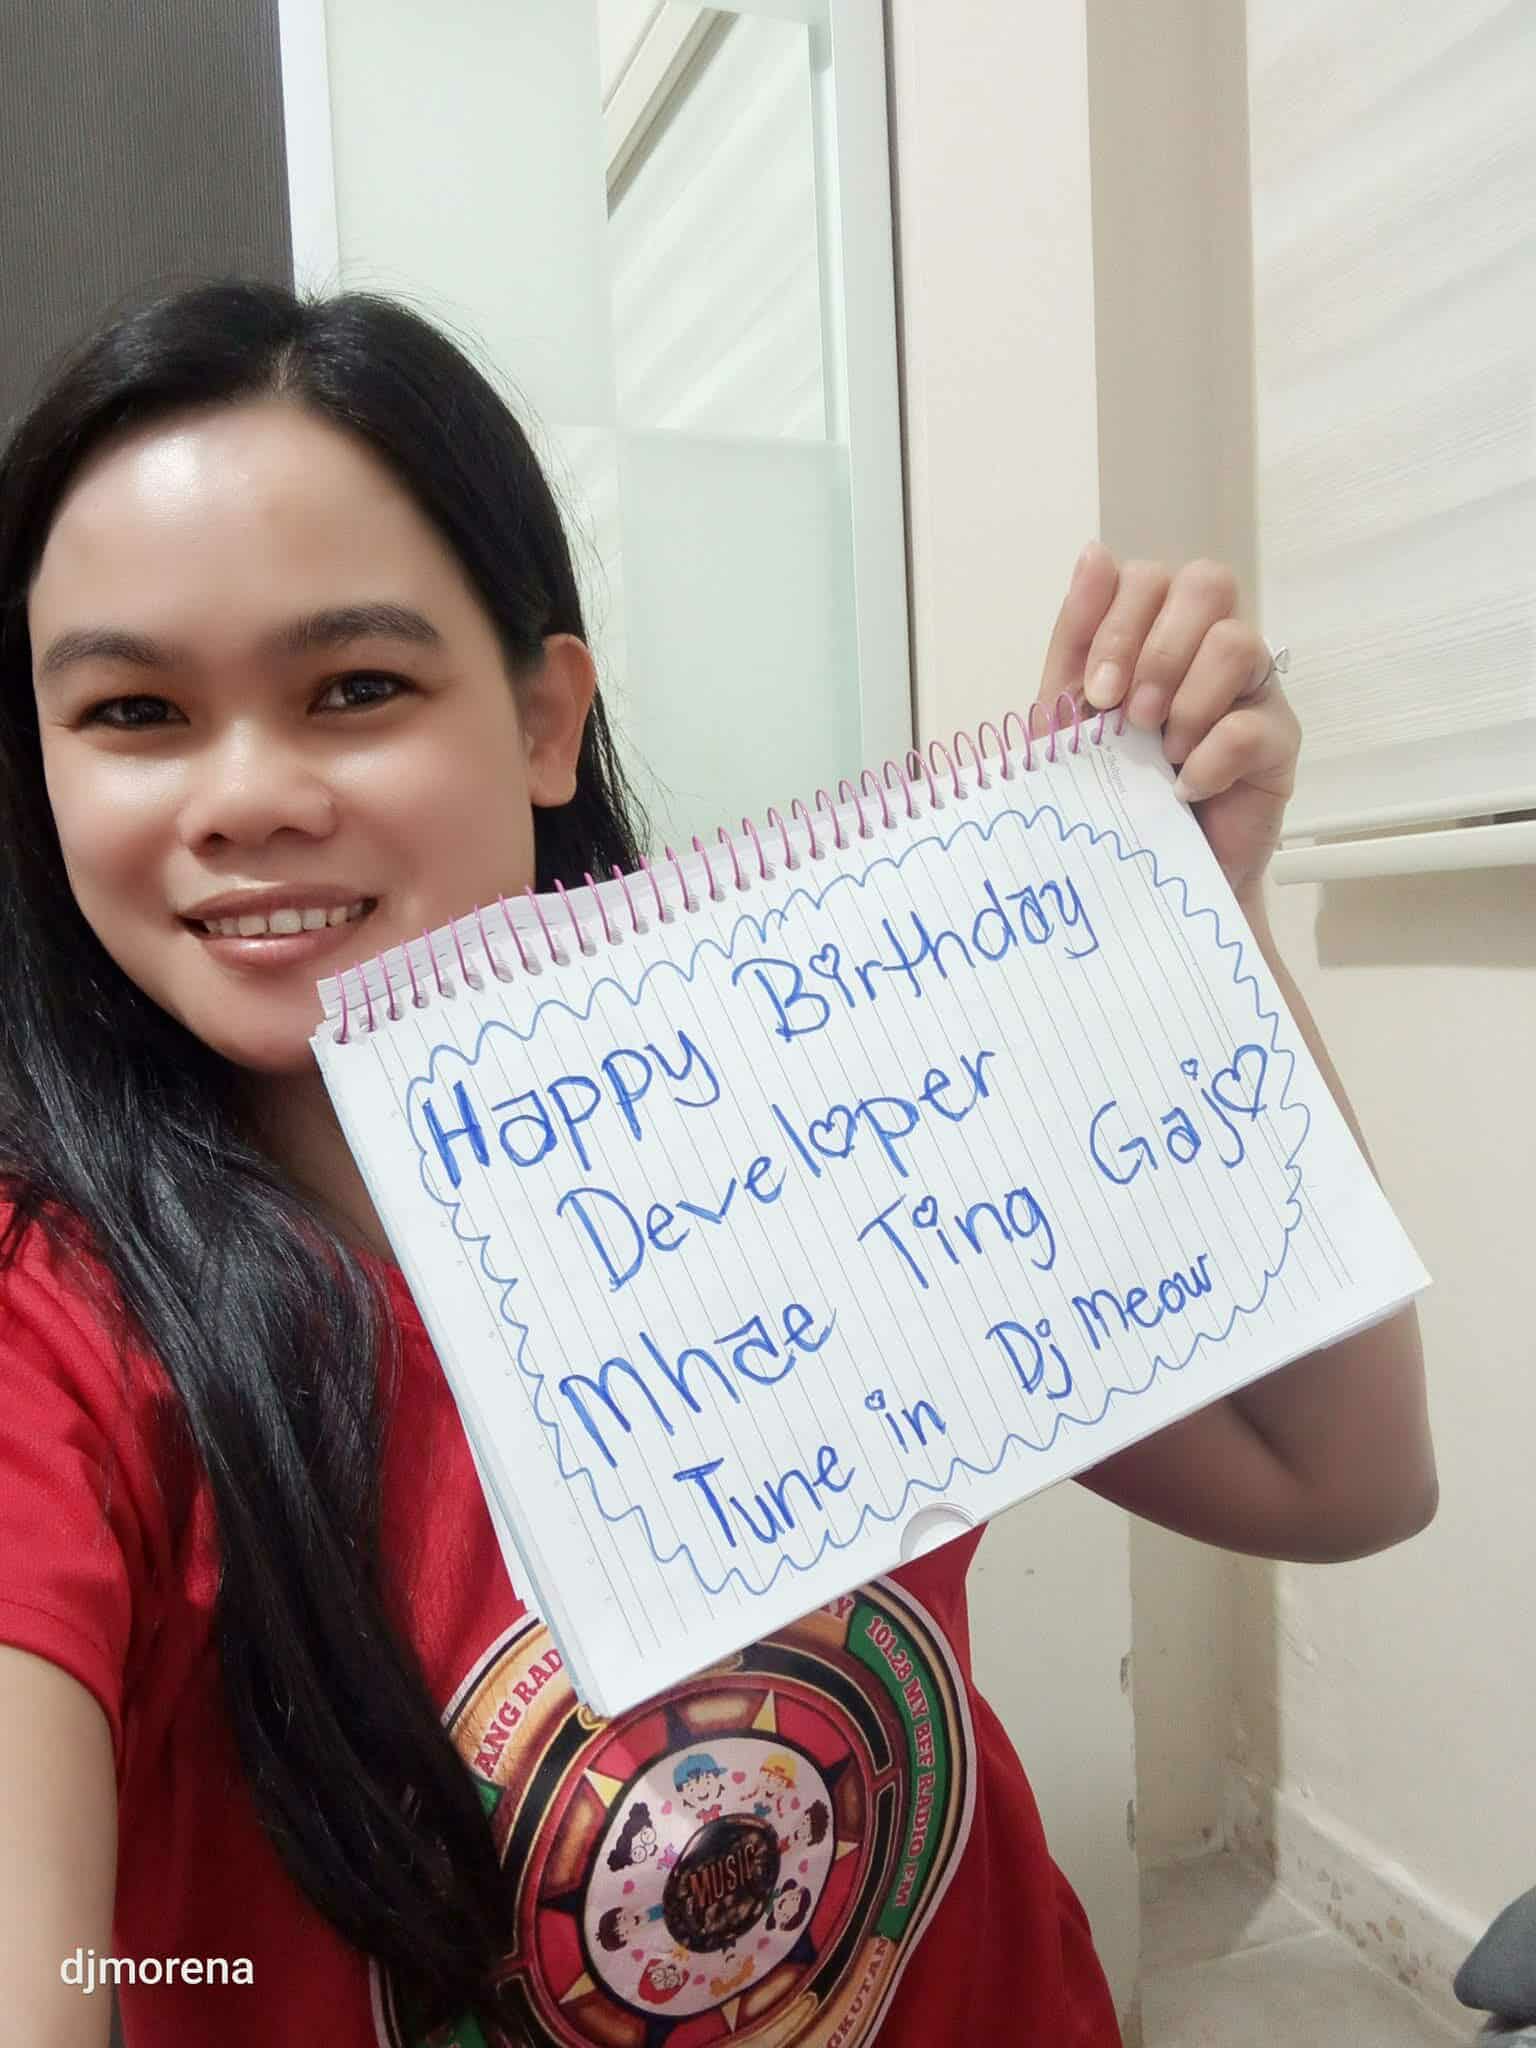 Happy Birthday
Developer
Mhae Ting Gajo
Tune in Dj Meow
ANG RAD
101.28 MY BEE RADIO FM
MUSIC
GKUTAN
djmorena